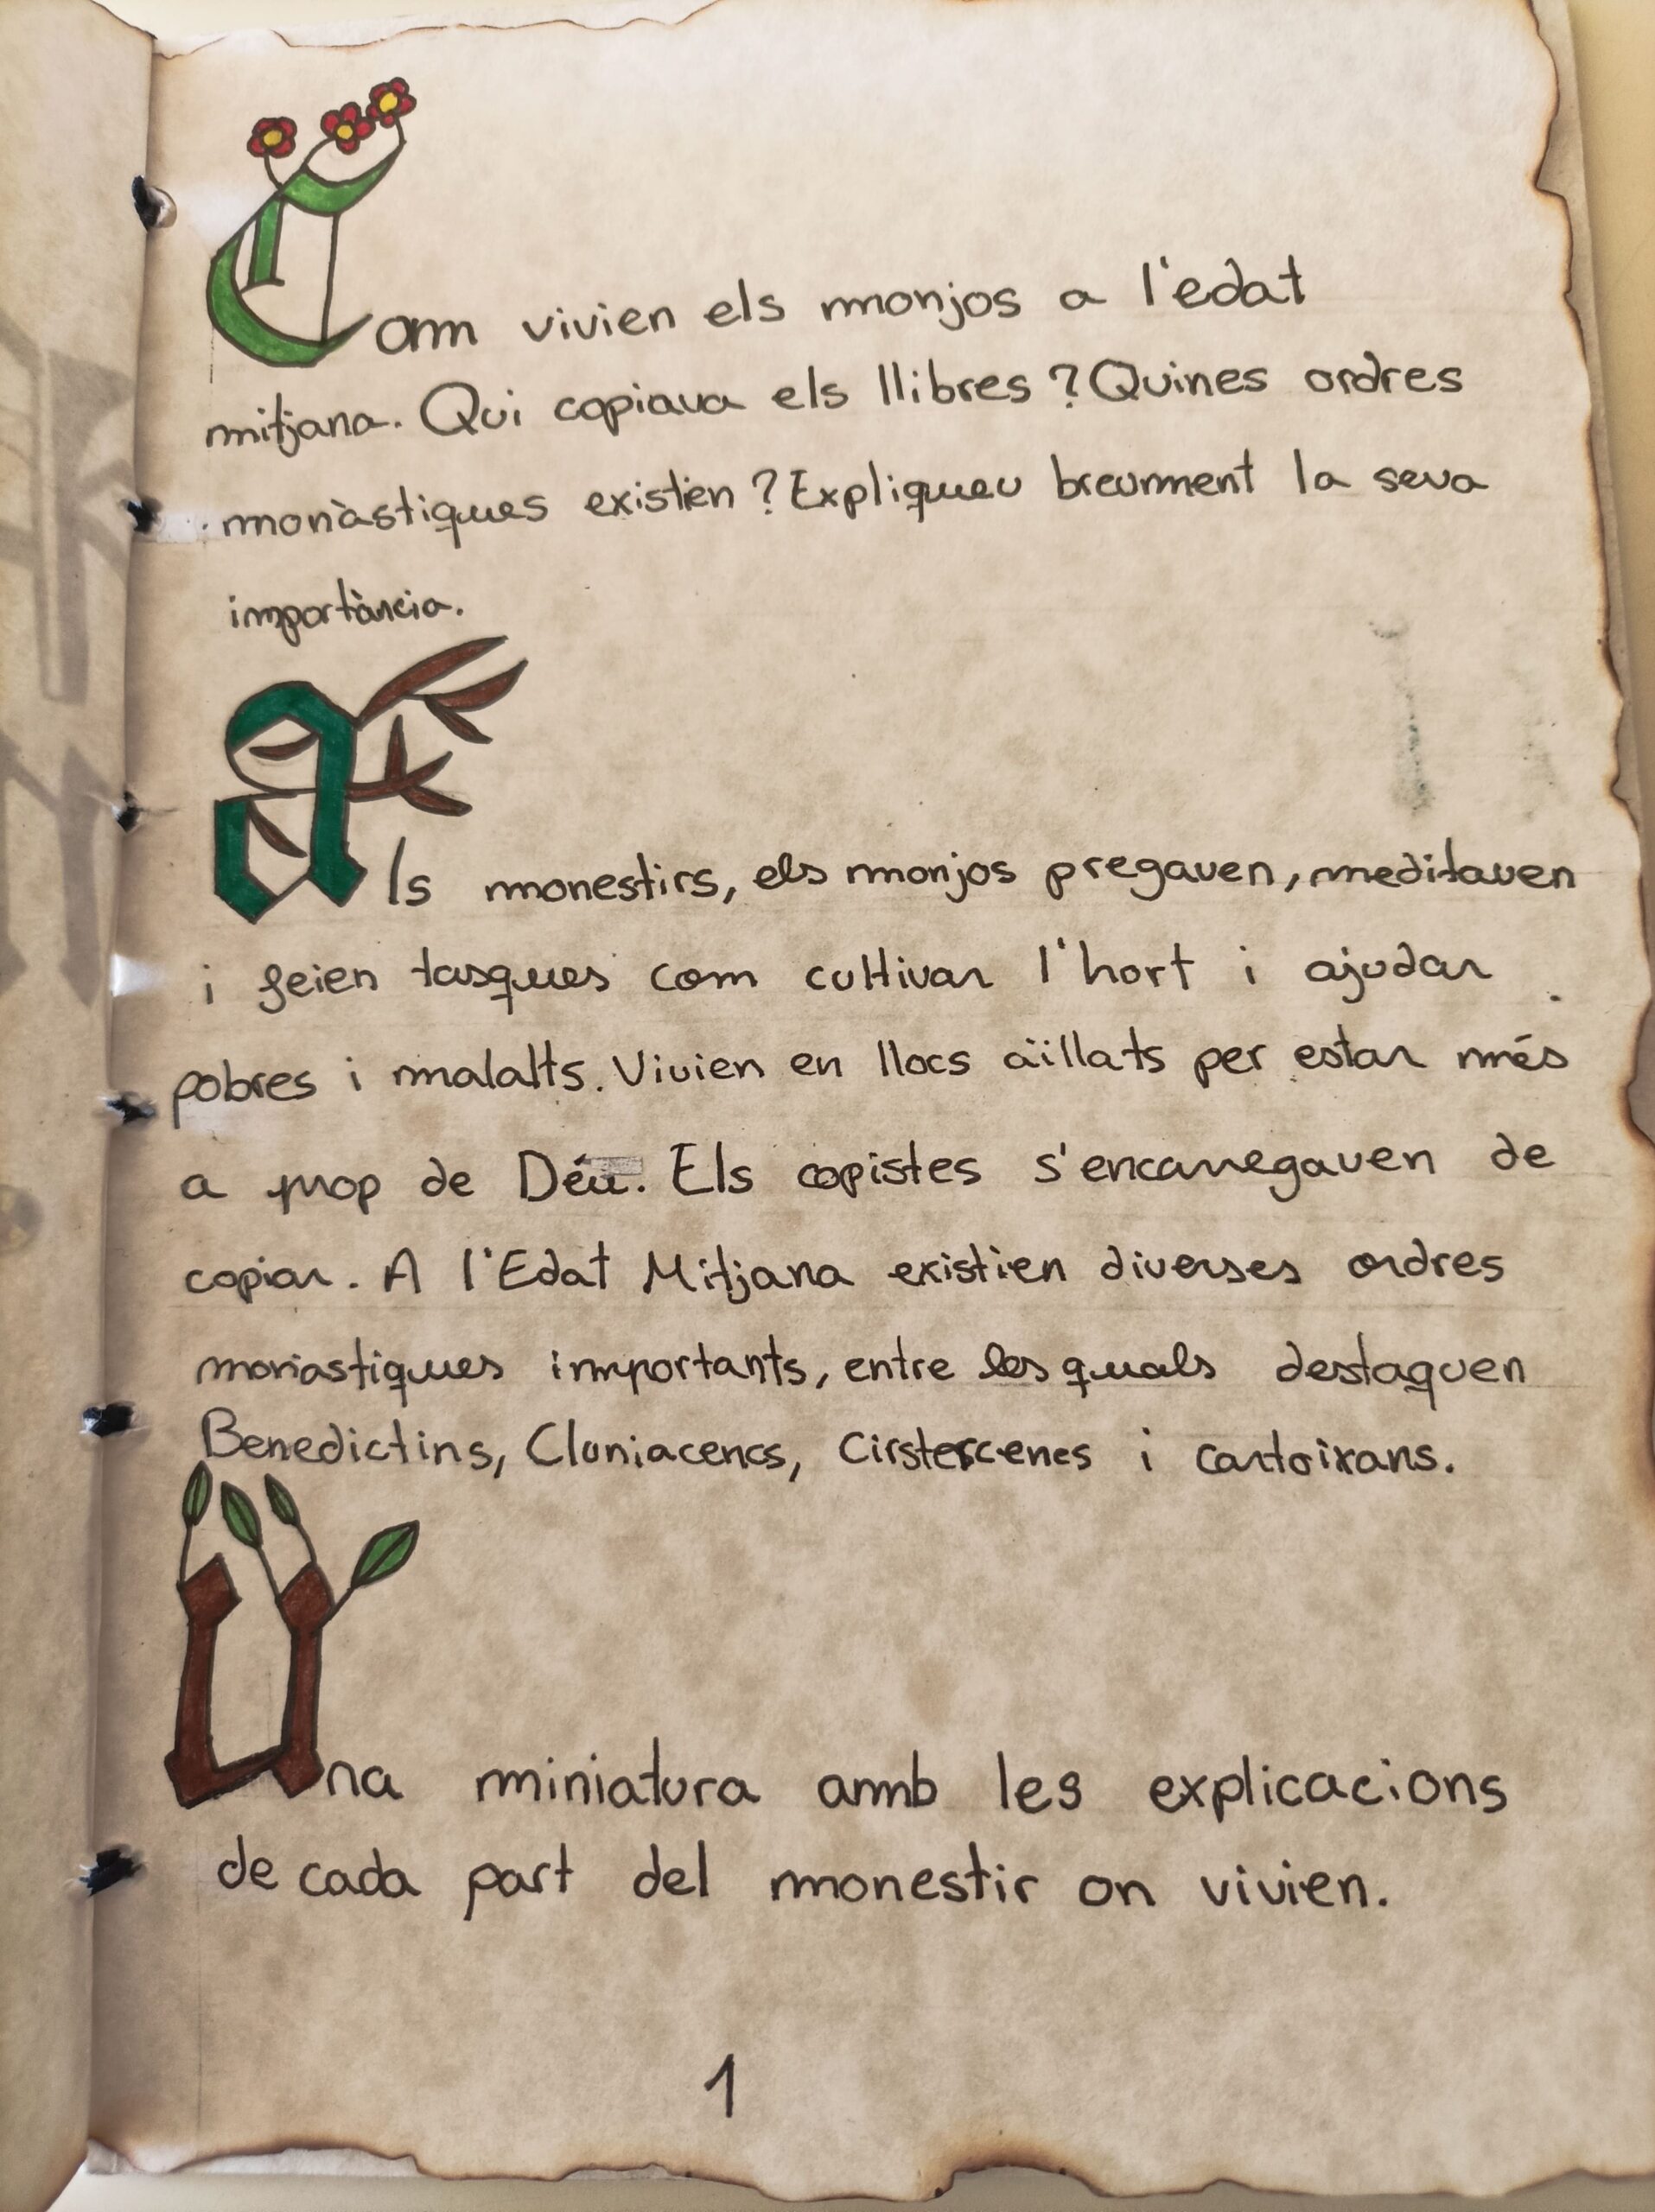 Com vivien els monjos a l'edat
mitjana. Qui copiava els llibres? Quines ordres
monàstiques existien? Expliqueu breument la seva
importància.
Als monestirs, els monjos pregaven, meditaven
i feien tasques com cultivar l'hort i ajudar
pobres i malalts. Vivien en llocs aïllats per estar més
a prop de Déu. Els copistes s'encarregaven de
copiar. A l'Edat Mitjana existien diverses ordres
monàstiques importants, entre les quals destaquen
Benedictins, Cluniacencs, Cirstercenes i cartoixans.
Una miniatura amb les explicacions
de cada part del monestir on vivien.
1